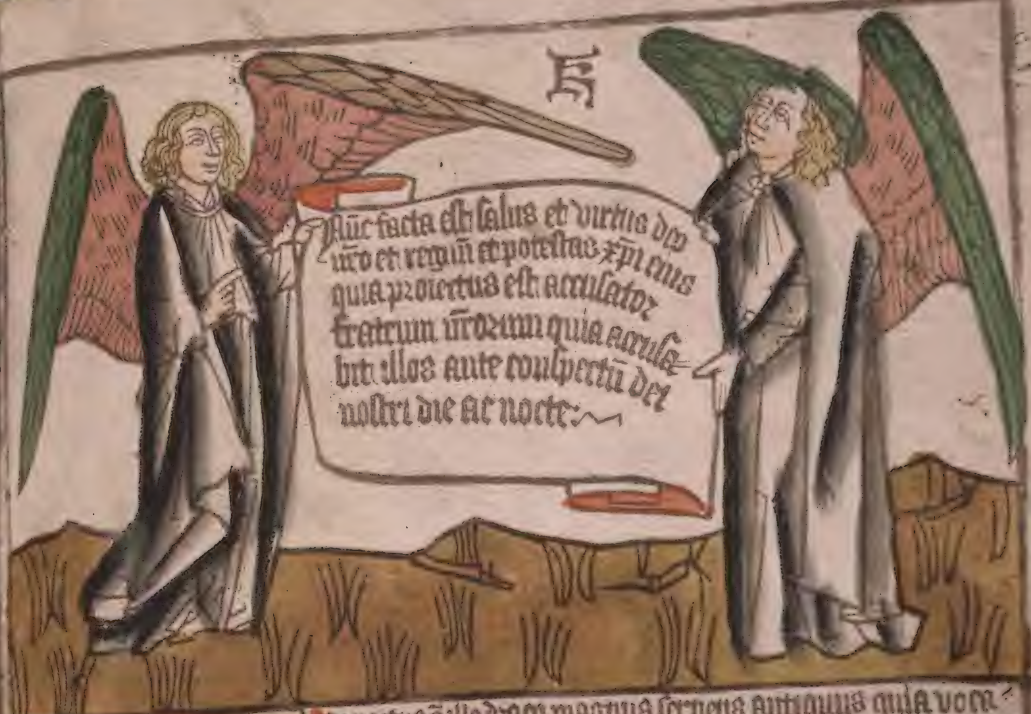 Nūc facta est salus et virtus deo
nr̄o et regnū et potestas xp̄i eius
quia proiectus est accusator
fratrum nr̄orum quia accusa-
bit illos ante conspectū dei
nostri die ac nocte:
draco magnus serpens antiquus quia voca